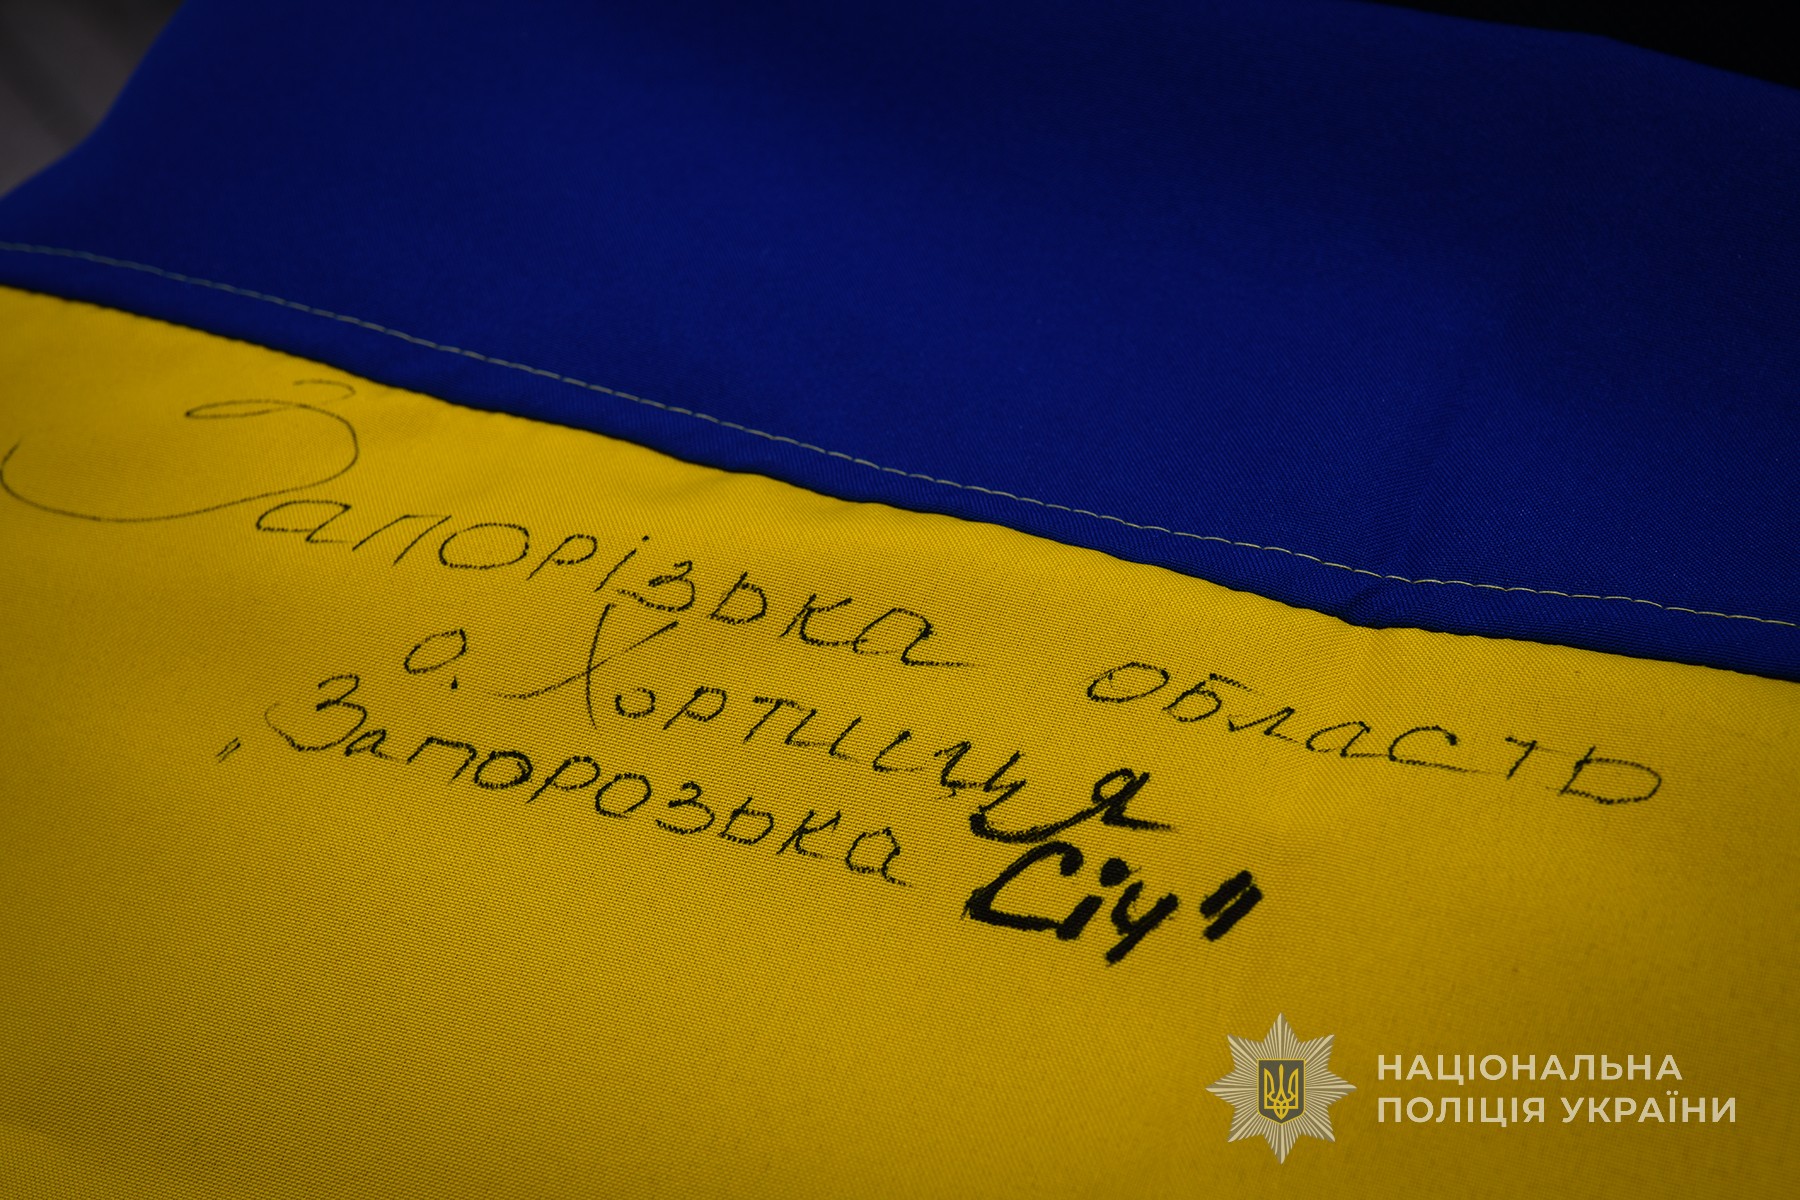 Запорізька область
о. Хортиця
„Запорозька Січ"
НАЦІОНАЛЬНА
ПОЛІЦІЯ УКРАЇНИ